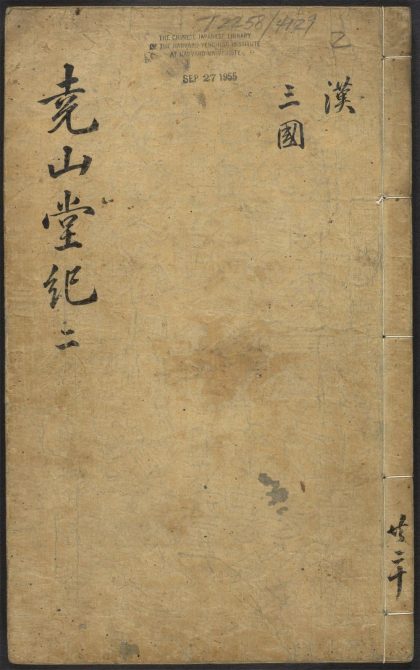 T 2258/4129
2
THE CHINESE-JAPANESE LIBRARY
OF THE HARVARD-YENCHING INSTITUTE
AT HARVARD UNIVERSITY
SEP 27 1955
漢
三國
堯山堂紀二
共二十